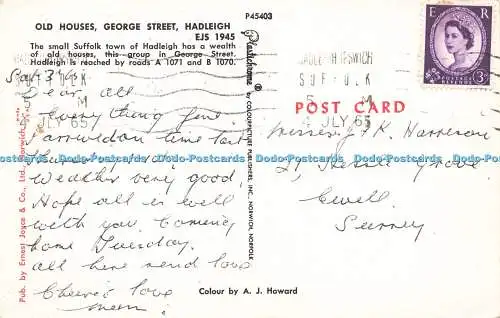 OLD HOUSES, GEORGE STREET, HADLEIGH
EJS 1945
The small Suffolk town of Hadleigh has a wealth
of old houses, this group in George Street.
Hadleigh is reached by roads A 1071 and B 1070.
P45403
Plastichrome ®
by COLOURPICTURE PUBLISHERS, INC., NORWICH, NORFOLK
Pub. by Ernest Joyce & Co., Ltd., Norwich
HADLEIGH IPSWICH
SUFFOLK
JULY 65
E R
3D
POST CARD
Dear all
Everything fine
arrived on time last
Weather very good.
Hope all is well
with you. Coming
home Tuesday.
all here send love
Cheerio love
Mum
Harrison
21,
Grove
Ewell
Surrey
Colour by A. J. Howard
Dodo-Postcards Dodo-Postcards Dodo-Postcards Dodo-Postcards